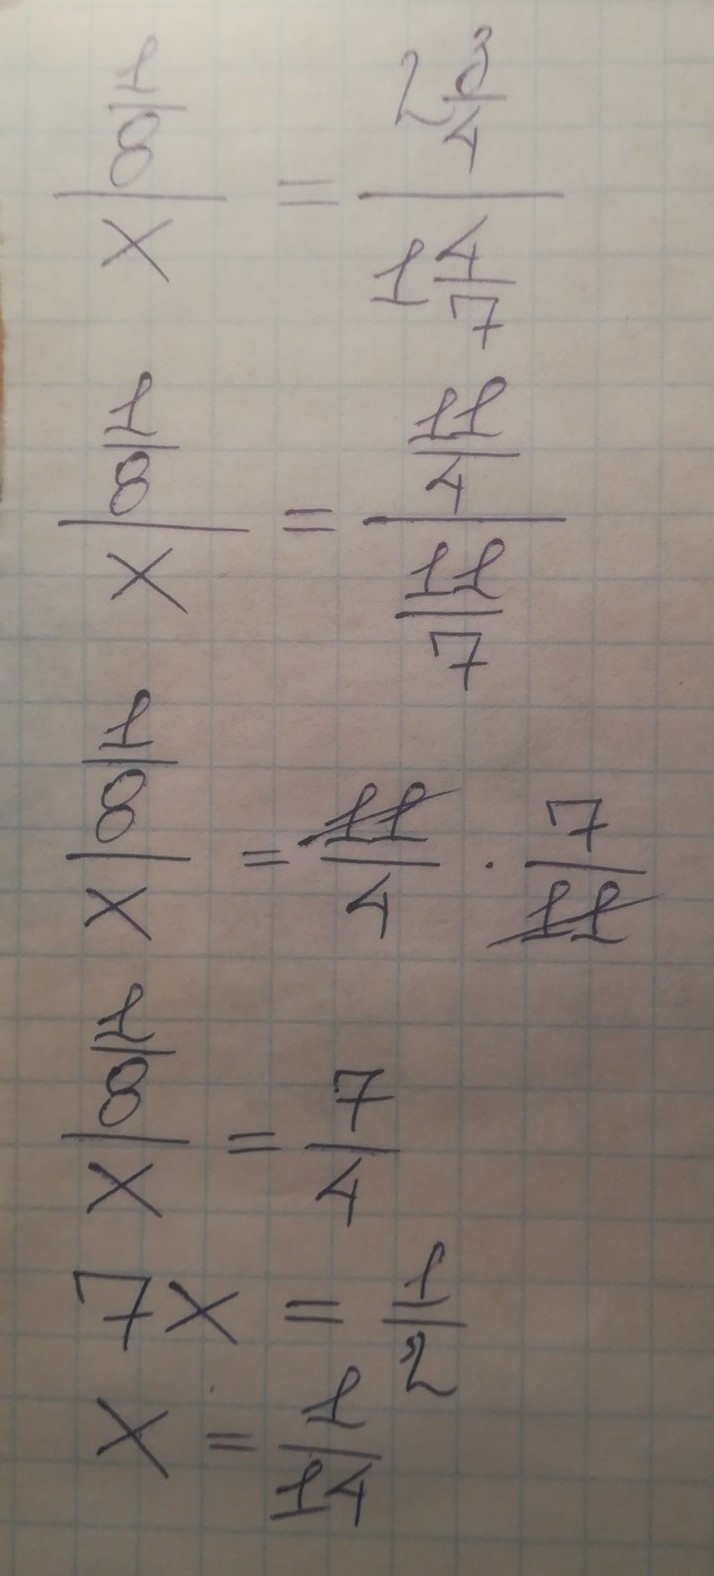 1/8 / x = 2 3/4 / 1 4/7
1/8 / x = 11/4 / 11/7
1/8 / x = 11/4 · 7/11
1/8 / x = 7/4
7x = 1/2
x = 1/14